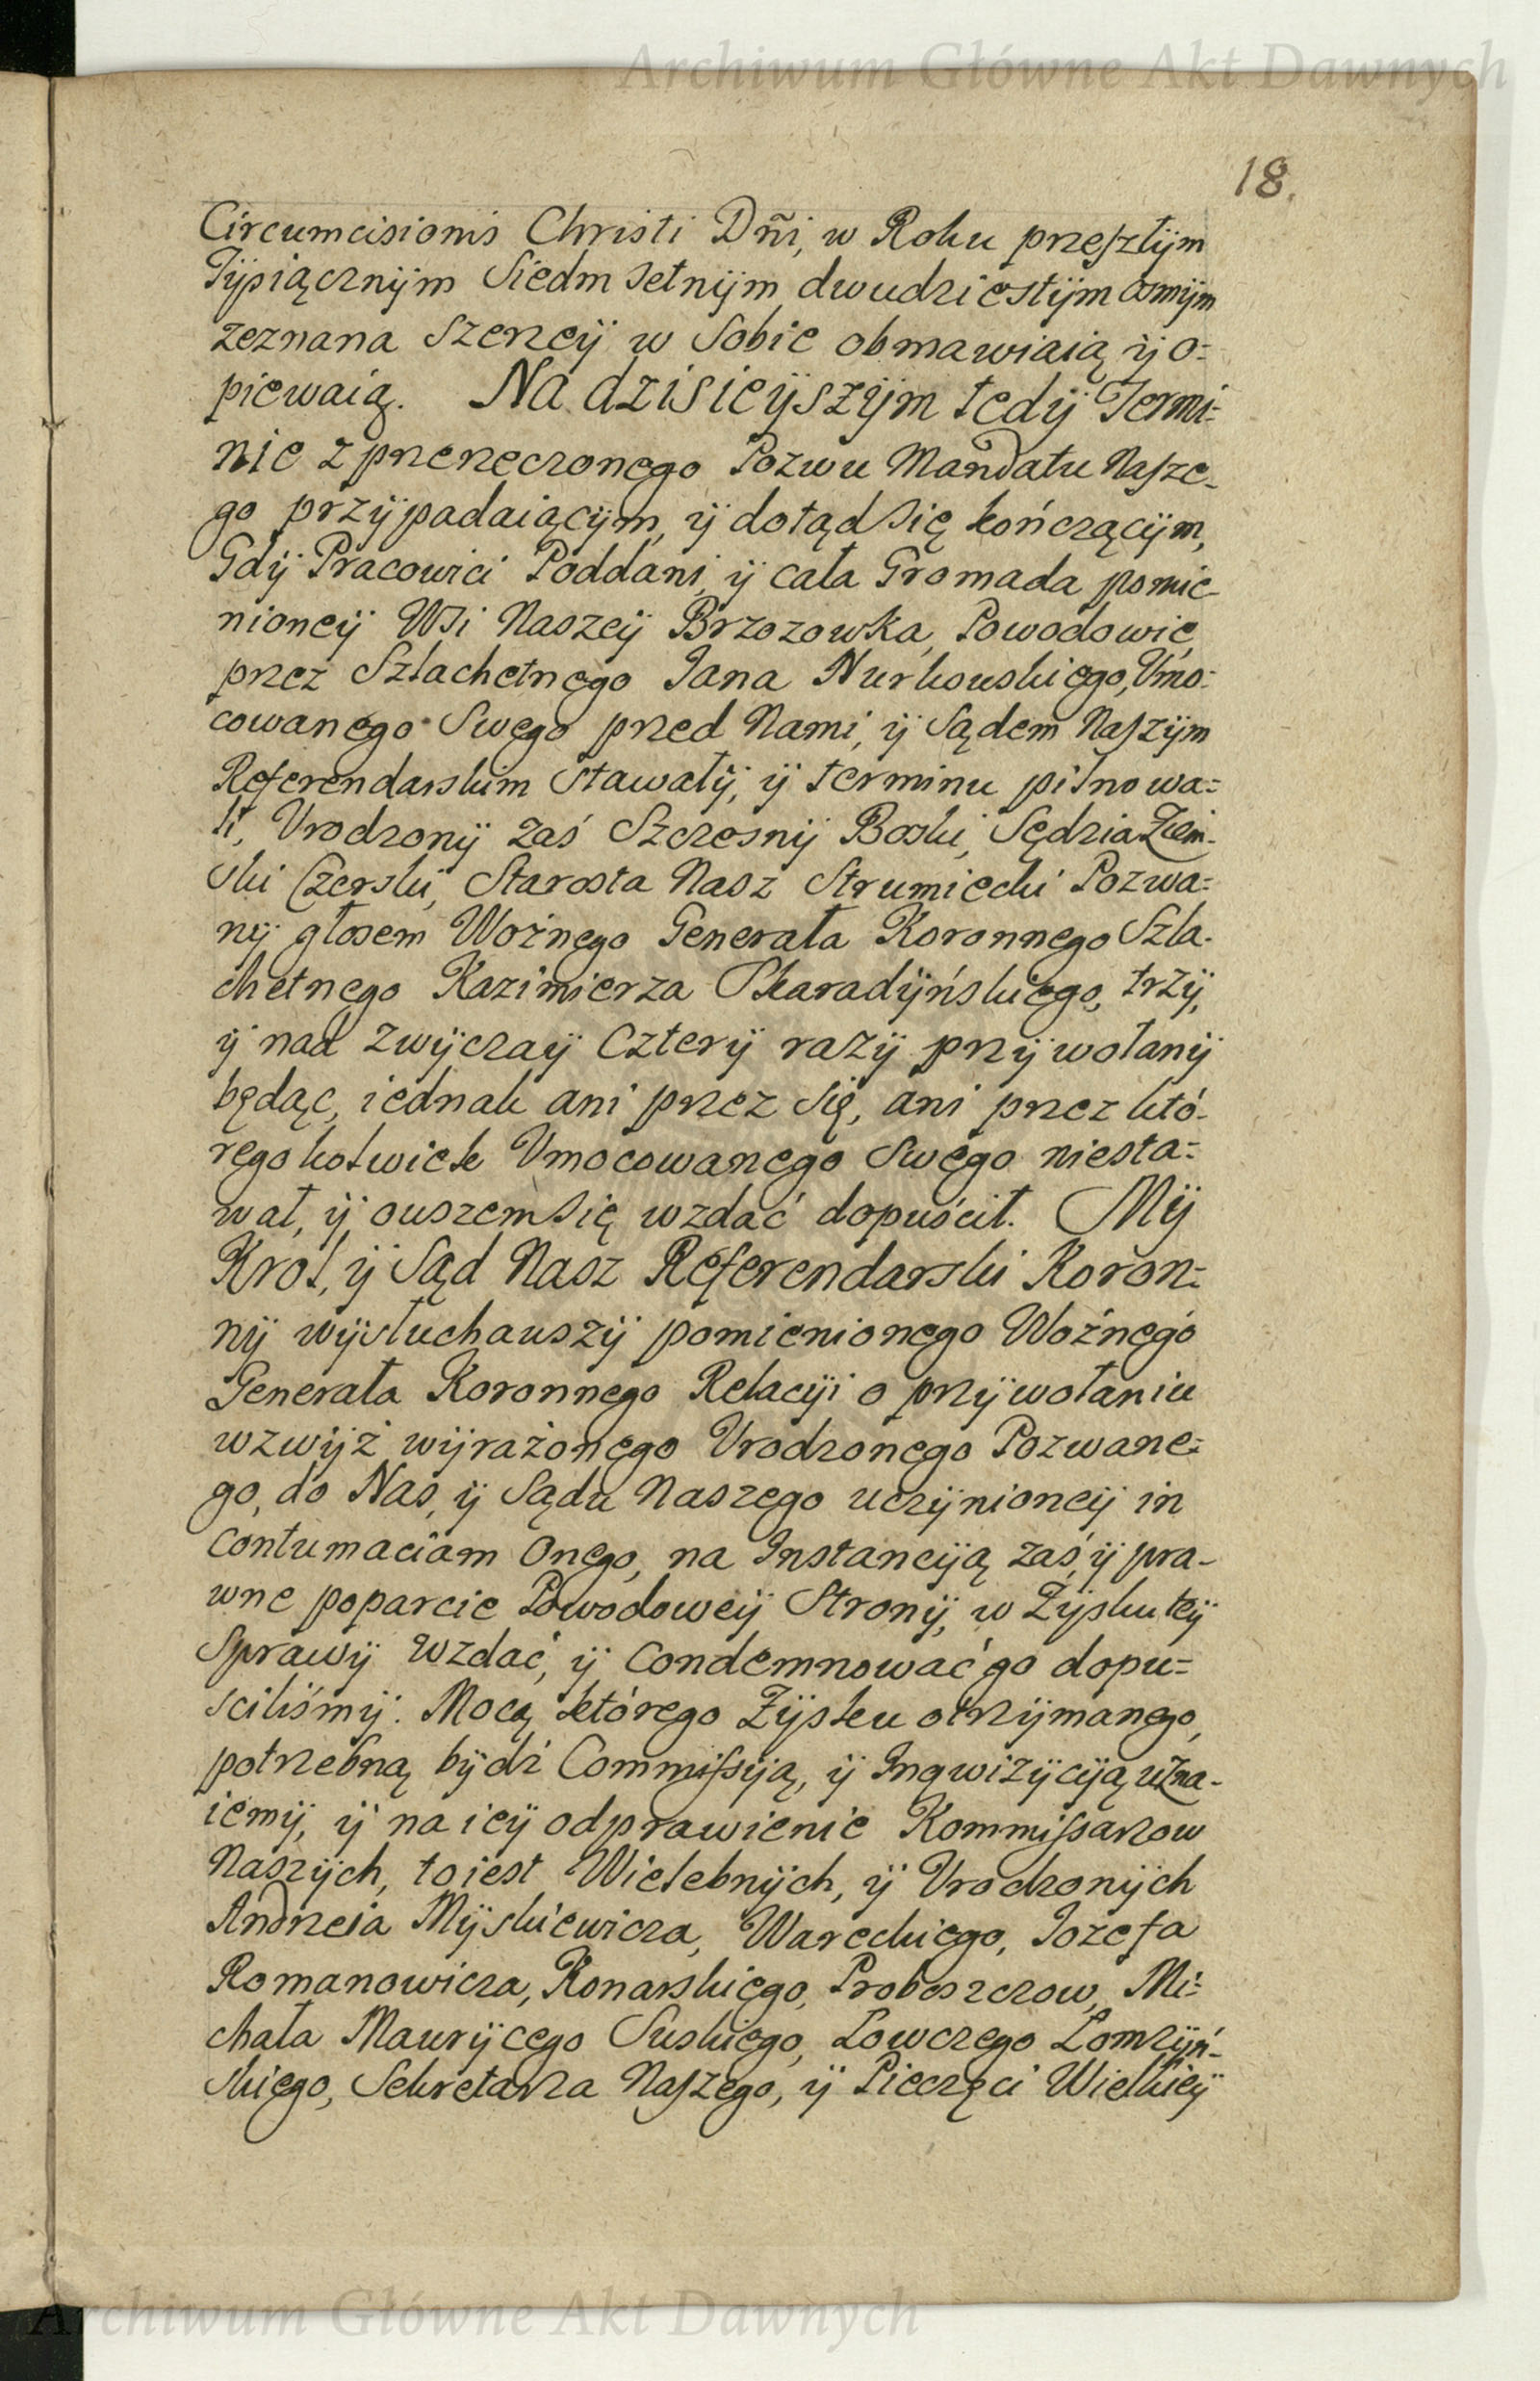 Archiwum Główne Akt Dawnych
18.
Circumcisionis Christi Dñi, w Roku przeszłÿm
Tÿsiącznÿm Siedm setnÿm dwudziestÿm osmÿm
zeznana szerzeÿ w sobie obmawiaią ÿ o=
piewaią. Na dzisieÿszÿm tedÿ Termi=
nie z przerzeczonego Pozwu Mandatu Nasze-
go przÿpadaiącÿm, ÿ dotąd się kończącÿm,
Gdÿ Pracowici Poddani, ÿ cała Gromada pomie-
nioneÿ Wsi Naszeÿ Brzozowka, Powodowie,
przez Szlachetnego Jana Nurkowskiego, Vmo=
cowanego Swego przed Nami, ÿ Sądem Naszÿm
Referendarskim stawałÿ, ÿ terminu pilnowa=
li, Vrodzonÿ zaś Szczesnÿ Boski, Sędzia Ziem-
ski Czerski, Starosta Nasz Strumiecki Pozwa=
nÿ głosem Woźnego Generała Koronnego Szla-
chetnego Kazimierza Skaradÿńskiego, trzÿ,
ÿ nad zwÿczaÿ czterÿ razÿ przÿwołanÿ
będąc, iednak ani przez się, ani przez któ-
regokolwiek Vmocowanego swego niesta=
wał, ÿ owszem się wzdać dopuścił. Mÿ
Krol, ÿ Sąd Nasz Referendarski Koron=
nÿ wÿsłuchawszÿ pomienionego Woźnego
Generała Koronnego Relacÿi o przÿwołaniu
wzwÿż wÿrażonego Vrodzonego Pozwane=
go, do Nas, ÿ Sądu Naszego uczÿnioneÿ in
contumaciam onego, na Instancÿią zaś, ÿ pra-
wne poparcie Powodoweÿ Stronÿ, w Zÿsku teÿ
Sprawÿ wzdać, ÿ condemnować go dopu=
sciliśmÿ. Mocą którego Zÿsku otrzÿmanego,
potrzebną bÿdź Commissÿią, ÿ Inqwizÿcÿią uzna-
iemÿ, ÿ na ieÿ odprawienie Kommissarzow
Naszÿch, to iest Wielebnÿch, ÿ Vrodzonÿch
Andrzeia Mÿskiewicza, Wareckiego, Jozefa
Romanowicza, Konarskiego, Proboszczow, Mi=
chała Maurÿcego Suskiego, Łowczego Łomzÿń-
skiego, Sekretarza Naszego, ÿ Pieczęci Wielkieÿ
Archiwum Główne Akt Dawnych